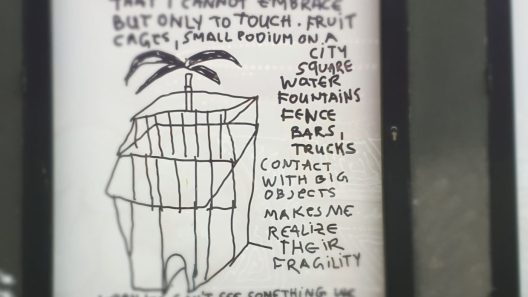 THAT I CANNOT EMBRACE
BUT ONLY TO TOUCH. FRUIT
CAGES, SMALL PODIUM ON A
CITY
SQUARE
WATER
FOUNTAINS
FENCE
BARS,
TRUCKS
CONTACT
WITH BIG
OBJECTS
MAKES ME
REALIZE
THEIR
FRAGILITY
SEE SOMETHING